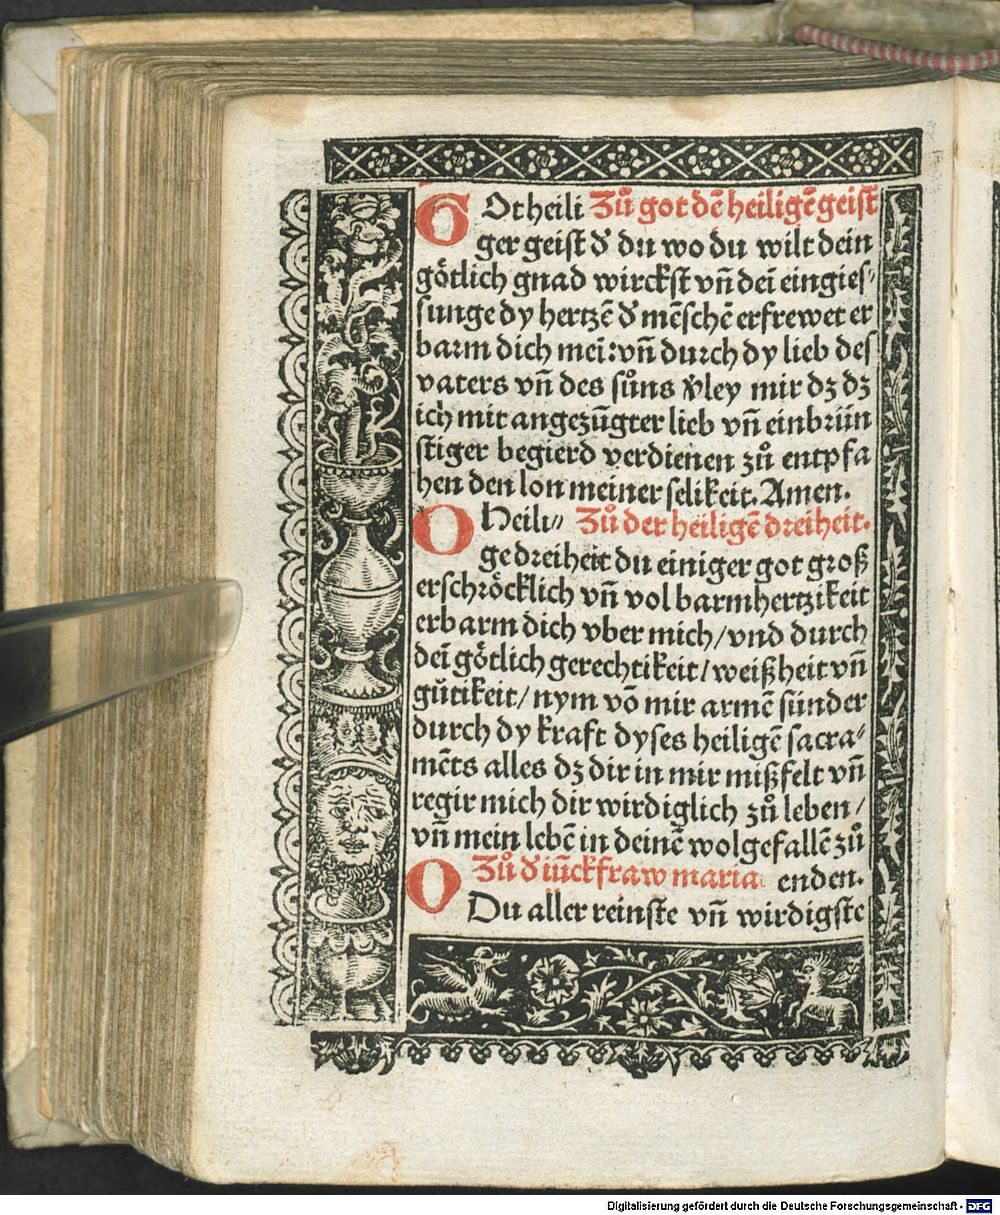 GOtheili Zů got dē heiligē geist
ger geist đ du wo du wilt dein
götlich gnad wirckst vñ dei eingies⸗
sunge dy hertzē đ mēschē erfrewet er
barm dich mei: vñ durch dy lieb des
vaters vñ des sůns vley mir dz dz
ich mit angezūgter lieb vñ einbrün
stiger begierd verdienen zů entpfa
hen den lon meiner selikeit. Amen.
O Heili⸗ Zů der heiligē dreiheit.
ge dreiheit du einiger got groß
erschröcklich vñ vol barmhertzikeit
erbarm dich vber mich/vnd durch
dei götlich gerechtikeit/weißheit vñ
gůtikeit/nym vō mir armē sünder
durch dy kraft dyses heiligē sacra⸗
mēts alles dz dir in mir mißfelt vñ
regir mich dir wirdiglich zů leben/
vñ mein lebē in deinē wolgefallē zů
Zů đ iūckfraw maria enden.
O Du aller reinste vñ wirdigste
Digitalisierung gefördert durch die Deutsche Forschungsgemeinschaft - DFG